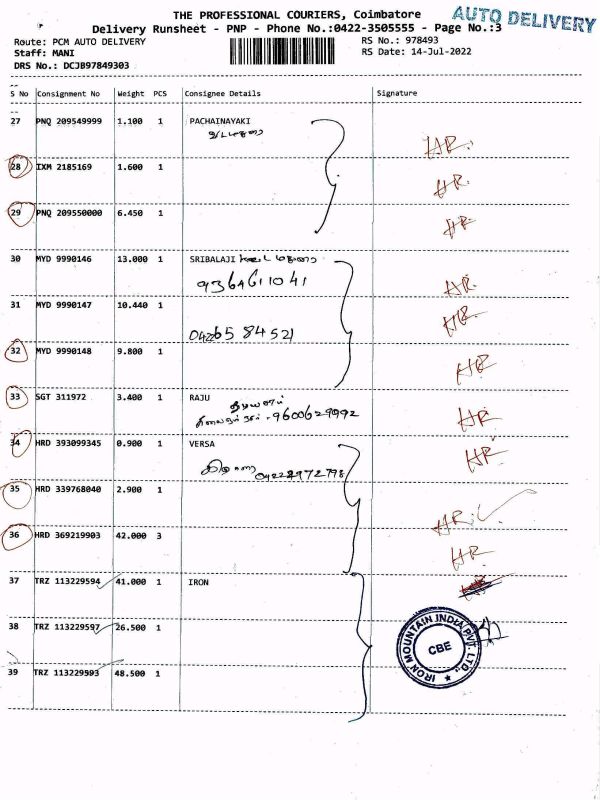 THE PROFESSIONAL COURIERS, Coimbatore
AUTO DELIVERY
Delivery Runsheet - PNP - Phone No.:0422-3505555 - Page No.:3
Route: PCM AUTO DELIVERY
RS No.: 978493
Staff: MANI
RS Date: 14-Jul-2022
DRS No.: DCJB97849303
S No Consignment No Weight PCS Consignee Details Signature
27 PNQ 209549999 1.100 1 PACHAINAYAKI
HR.
28 IXM 2185169 1.600 1
HR.
29 PNQ 209550000 6.450 1
HR
30 MYD 9990146 13.000 1 SRIBALAJI
9364611041
HR
31 MYD 9990147 10.440 1
HR
04226584521
32 MYD 9990148 9.800 1
HR
33 SGT 311972 3.400 1 RAJU
9600629992
HR
34 HRD 393099345 0.900 1 VERSA
HR
04222972798
35 HRD 339768040 2.900 1
HR
36 HRD 369219903 42.000 3
HR
37 TRZ 113229594 41.000 1 IRON
38 TRZ 113229597 26.500 1
IRON MOUNTAIN INDIA PVT. LTD.,
CBE
39 TRZ 113229593 48.500 1